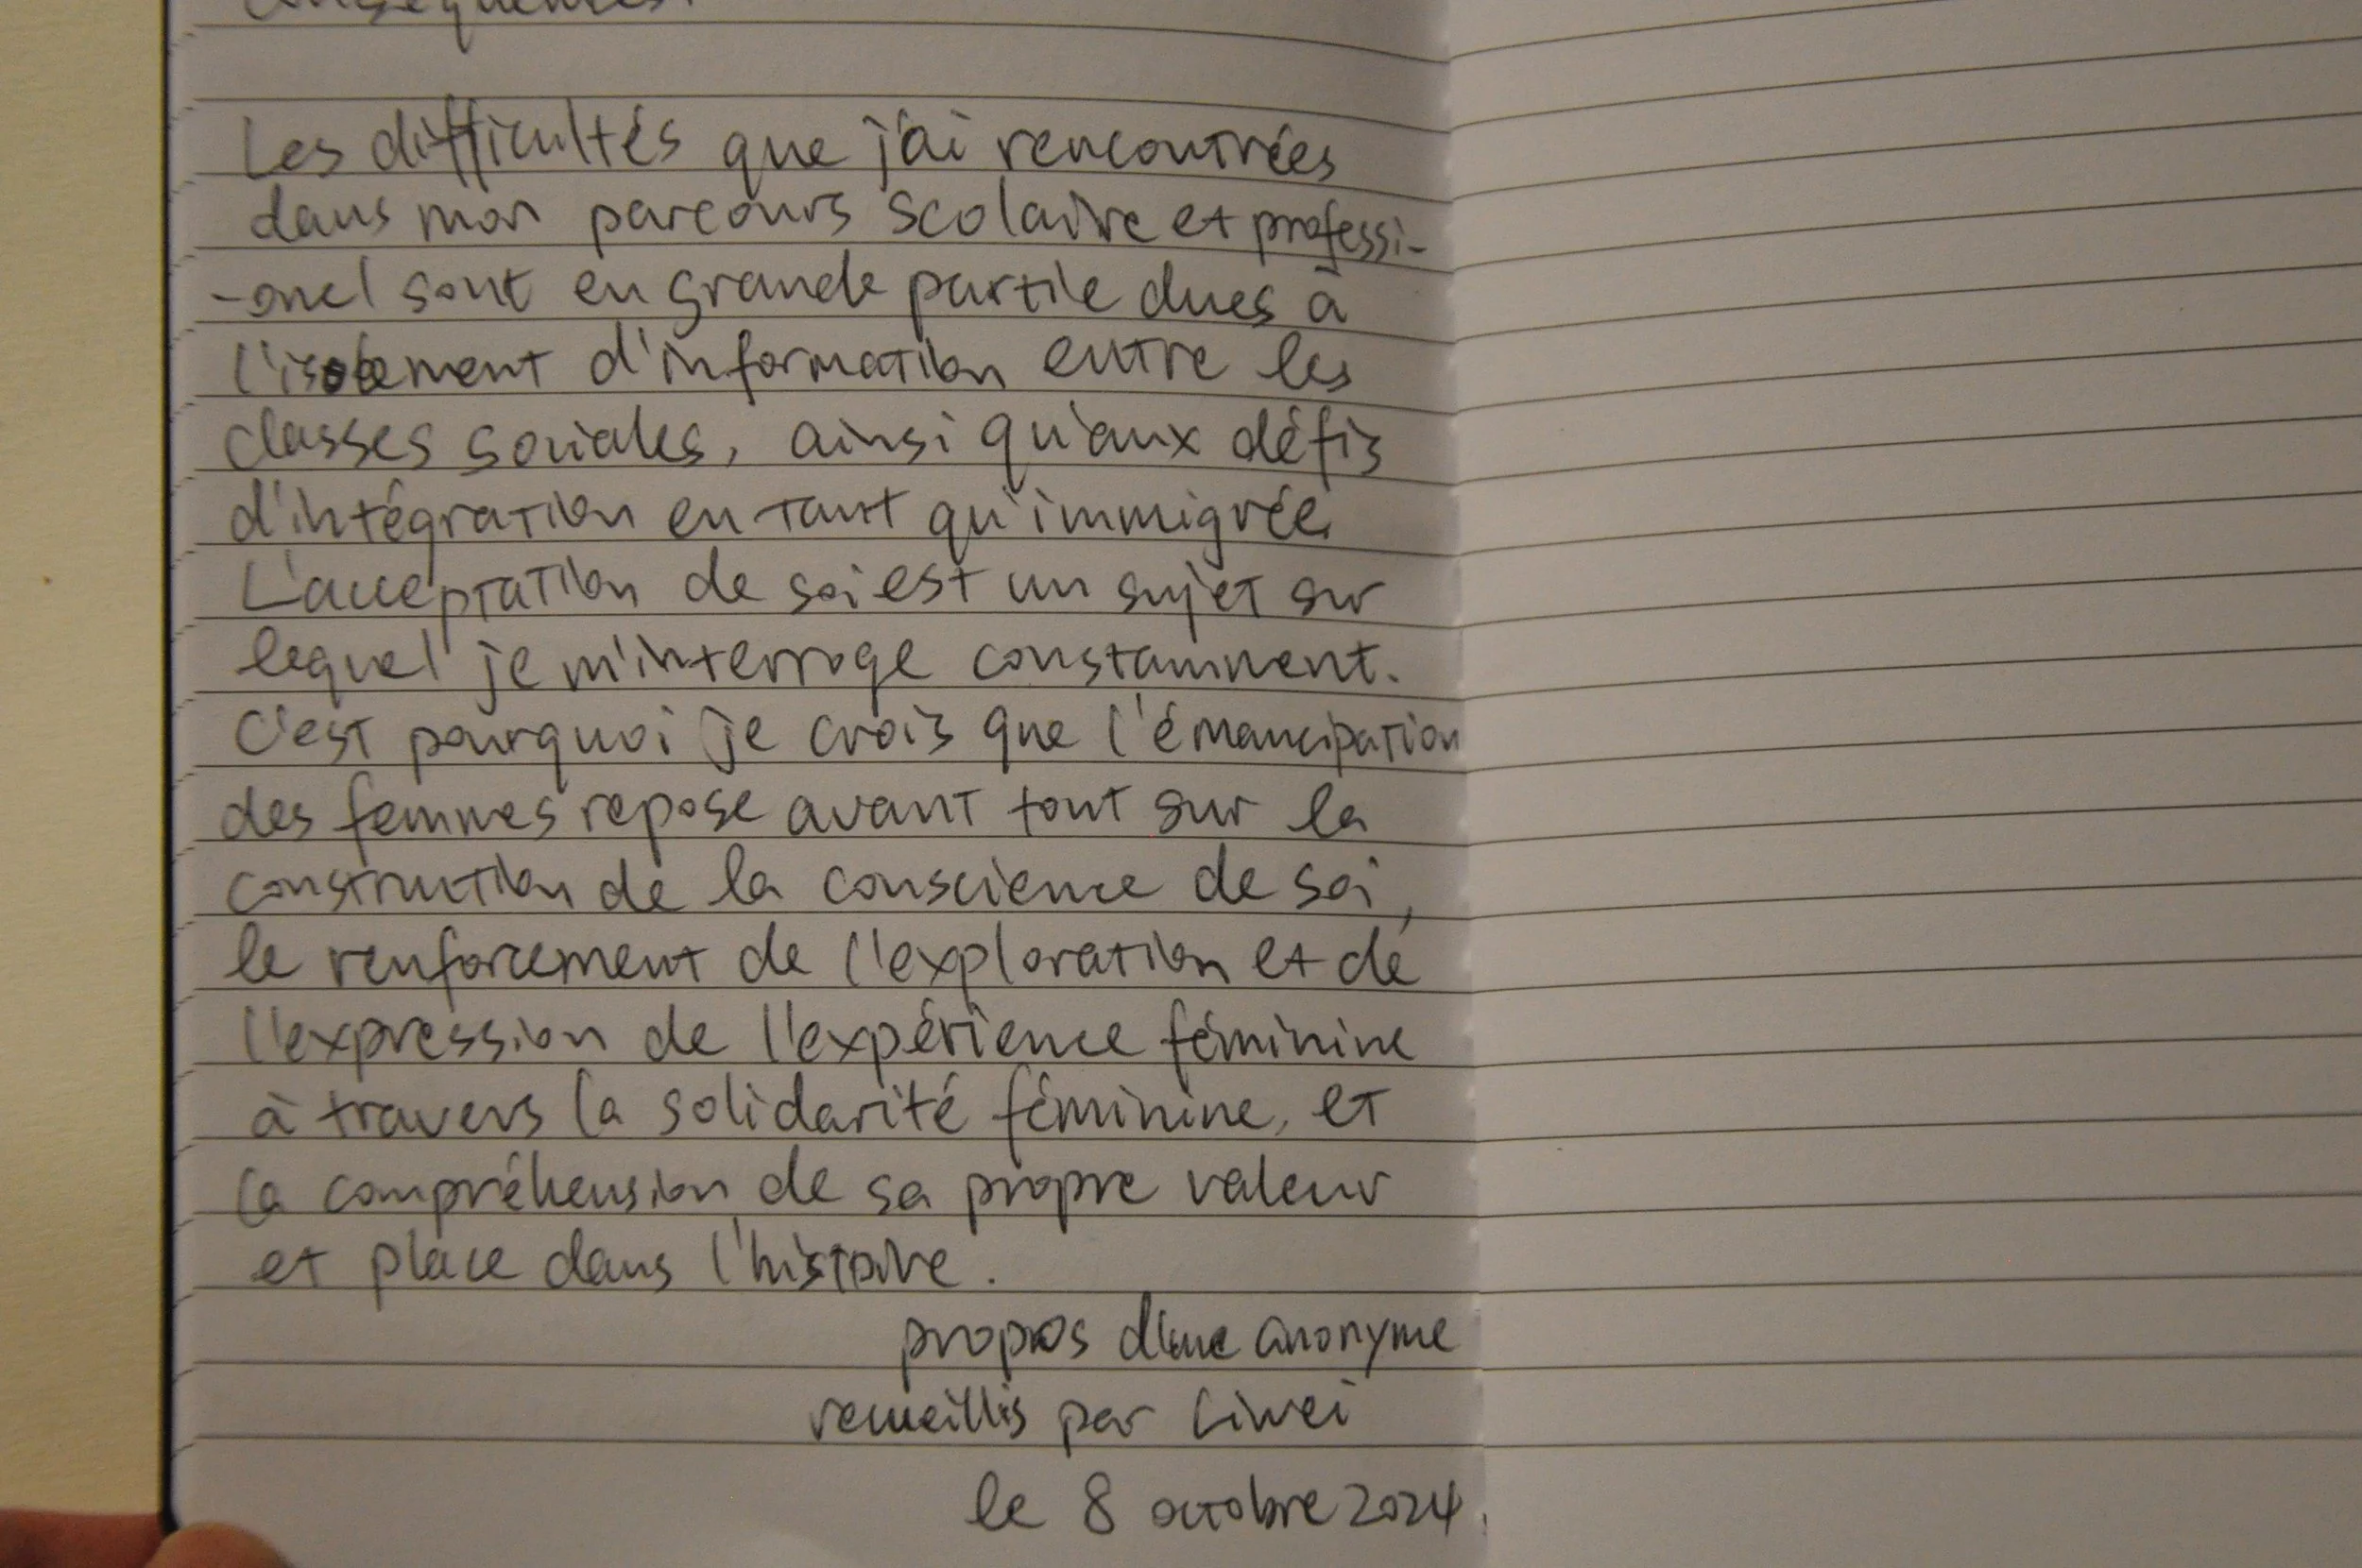 conséquences.
Les difficultés que j'ai rencontrées
dans mon parcours scolaire et professi-
-onel sont en grande partie dues à
l'isolement d'information entre les
classes sociales, ainsi qu'aux défis
d'intégration en tant qu'immigrée.
L'acceptation de soi est un sujet sur
lequel je m'interroge constamment.
C'est pourquoi je crois que l'émancipation
des femmes repose avant tout sur la
construction de la conscience de soi,
le renforcement de l'exploration et de
l'expression de l'expérience féminine
à travers la solidarité féminine, et
la compréhension de sa propre valeur
et place dans l'histoire.
propos d'une anonyme
recueillis par Liwei
le 8 octobre 2024.